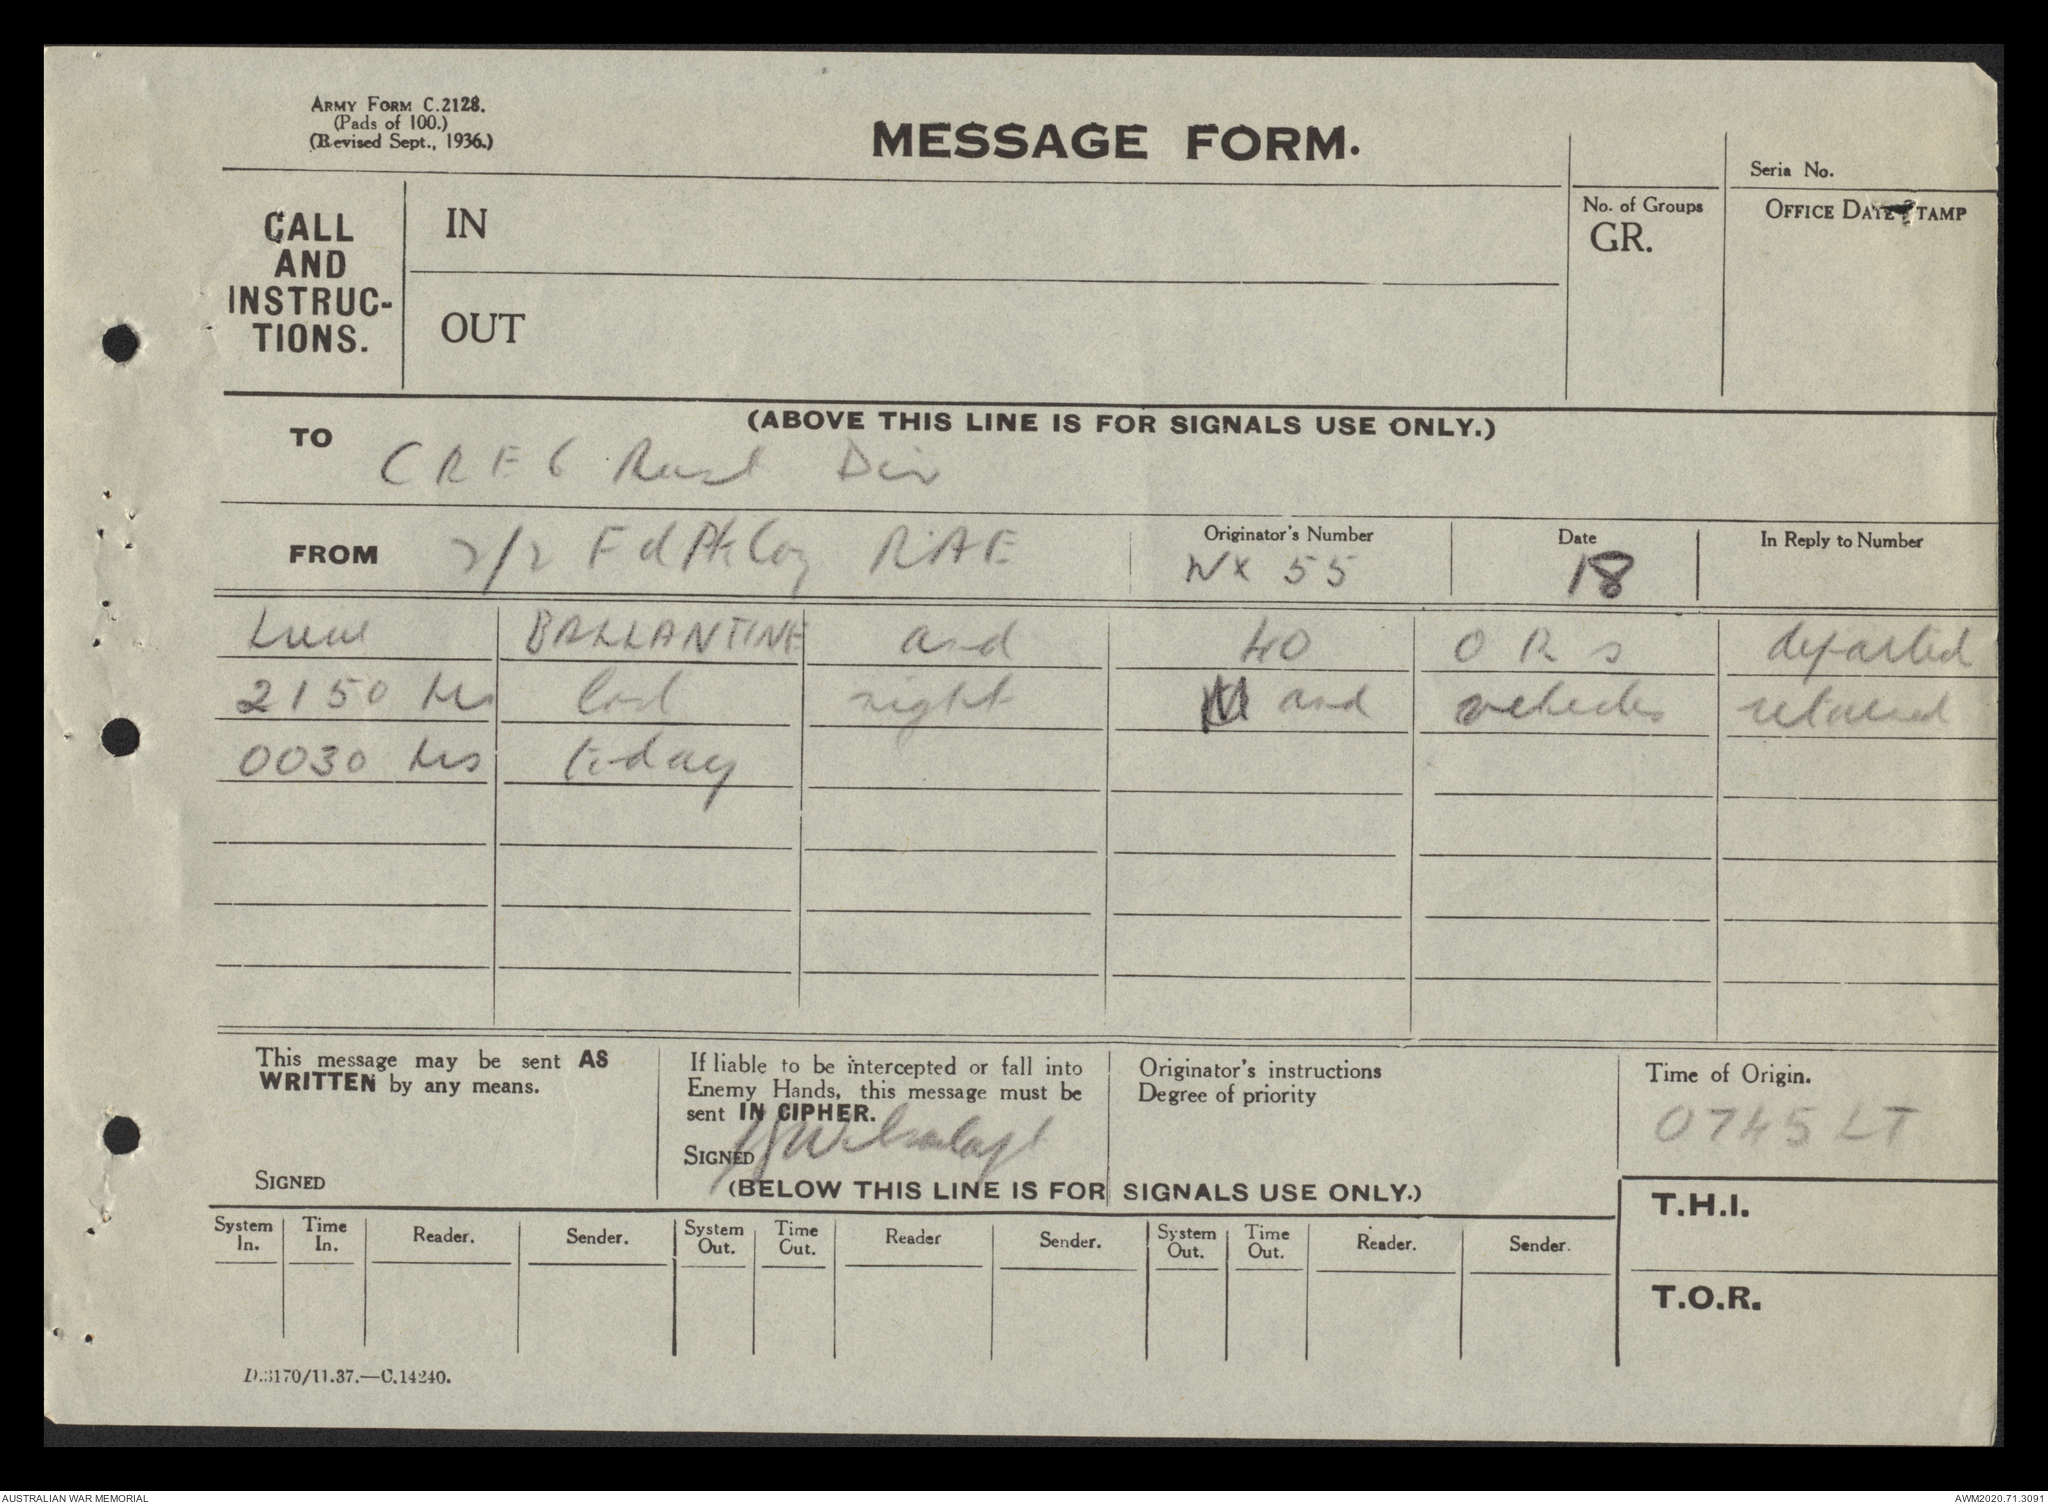 ARMY FORM C.2128.
(Pads of 100.)
(Revised Sept., 1936.)
MESSAGE FORM.
Seria No.
CALL
AND
INSTRUC-
TIONS.
IN
OUT
No. of Groups
GR.
OFFICE DATE TAMP
(ABOVE THIS LINE IS FOR SIGNALS USE ONLY.)
TO CRE 6 Aust Div
FROM 2/2 Fd Pk Coy RAE
Originator's Number
WX 55
Date
18
In Reply to Number
Lieut BALLANTINE and 40 O R s departed
2150 hrs last night and vehicles returned
0030 hrs today
This message may be sent AS
WRITTEN by any means.
SIGNED
If liable to be intercepted or fall into
Enemy Hands, this message must be
sent IN CIPHER.
SIGNED
Originator's instructions
Degree of priority
Time of Origin.
0745 LT
(BELOW THIS LINE IS FOR SIGNALS USE ONLY.)
T.H.I.
T.O.R.
System In. Time In. Reader. Sender. System Out. Time Out. Reader Sender. System Out. Time Out. Reader. Sender.
D.3170/11.37.—C.14240.
AUSTRALIAN WAR MEMORIAL
AWM2020.71.3091